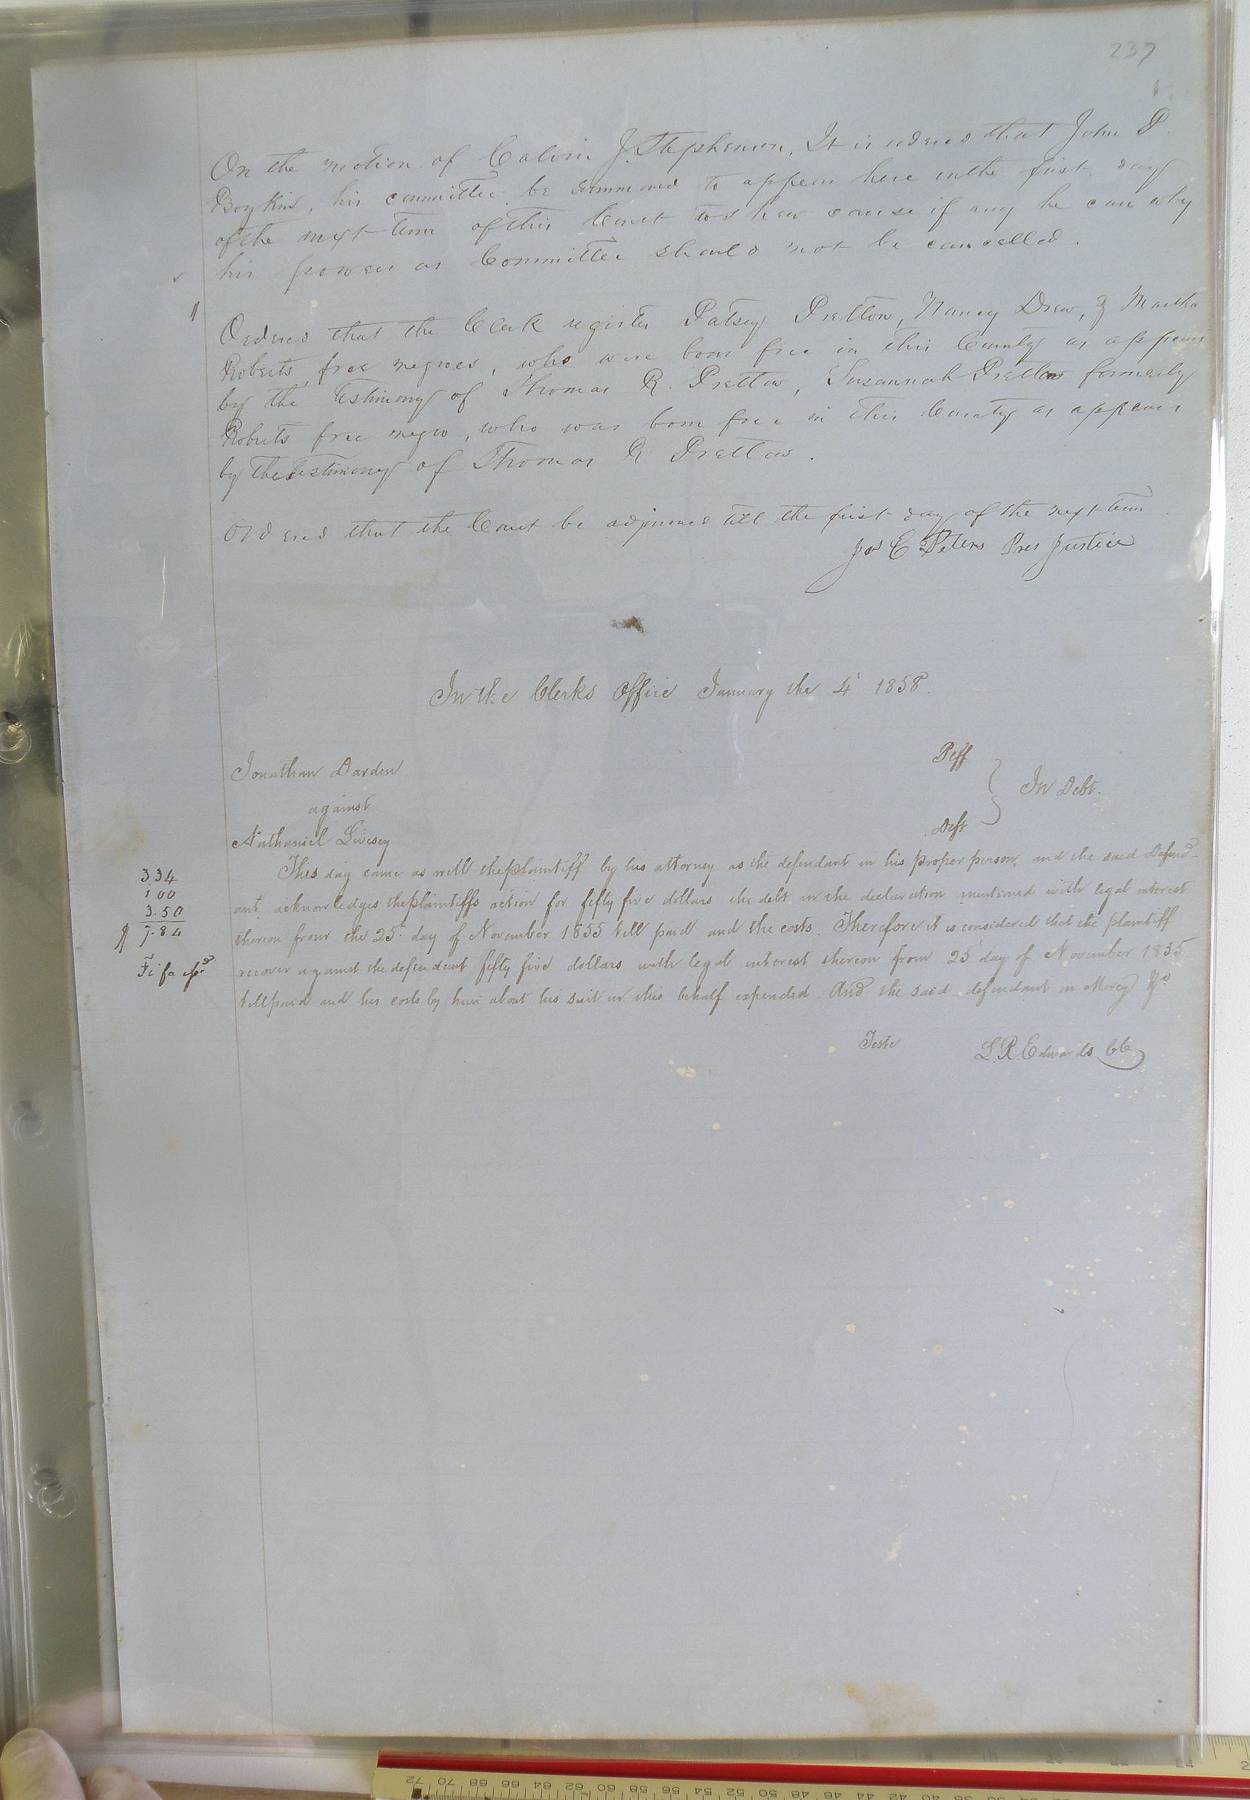 237
On the motion of Calvin J. Stephenson, It is ordered that John D.
Boykin, his committee be summoned to appear here on the first day
of the next term of this Court to show cause if any he can why
his powers as Committee should not be cancelled.
Ordered that the Clerk register Patsey Pretlow, Nancy Drew, & Martha
Roberts, free negroes, who were born free in this County as appears
by the testimony of Thomas R. Pretlow, Susannah Pretlow formerly
Roberts free negro, who was born free in this County as appears
by the testimony of Thomas R Pretlow.
Ordered that the Court be adjourned till the first day of the next term
Jos E Peters Pres Justice
In the Clerks Office January the 4 1858.
Jonathan Darden Plff
against In Debt.
Nathaniel Livesey Deft
This day came as well the plaintiff by his attorney as the defendant in his proper person, and the said Defend-
ant acknowledges the plaintiffs action for fifty five dollars the debt in the declaration mentioned with legal interest
thereon from the 25 day of November 1855 till paid and the costs. Therefore it is considered that the plaintiff
recover against the defendant fifty five dollars with legal interest thereon from 25 day of November 1855
till paid and his costs by him about his suit in this behalf expended. And the said defendant in Mercy &c
3.34
1 00
3.50
7.84
Fi fa
Teste L.R. Edwards CC
72 70 68 66 64 62 60 58 56 54 52 50 48 46 44 42 40 38 36 34